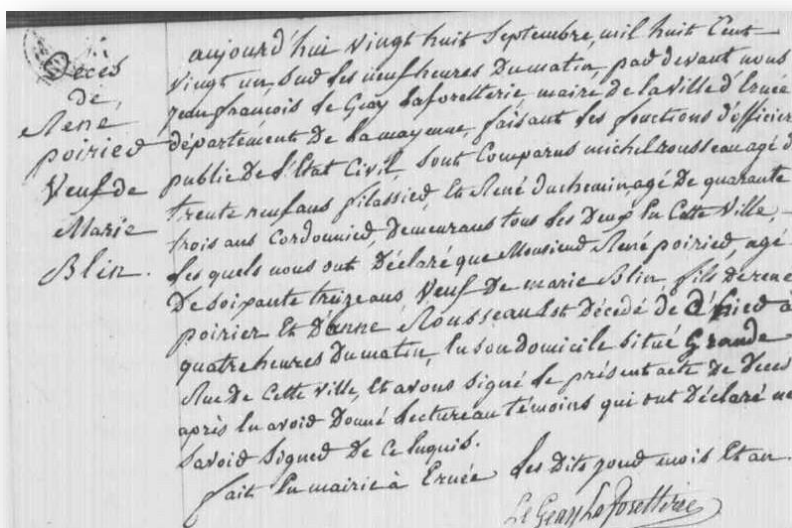 Décès
de
René
poirier
Veuf de
Marie
Blin.
aujourd'hui vingt huit Septembre, mil huit Cent
vingt un, sur les neuf heures Du matin, par devant nous
jean françois le Geay Laforetterie, maire de la Ville d'Ernée
département De la mayenne, faisant les fonctions d'officier
public De l'état Civil, sont Comparus michel rousseau agé d
trente neuf ans filassier, Et René duchemin, agé De quarante
trois ans Cordonnier, Demeurans tous les Deux En Cette Ville,
les quels nous ont Déclaré que Monsieur René poirier, agé
De soixante treize ans, Veuf De marie Blin, fils de rené
poirier Et D'anne Rousseau Est Décédé de d'hier à
quatre heures Du matin, En son domicile situé Grande
Rue De Cette Ville, Et avons signé le présent acte De Deces
après En avoir Donné lecture au témoins qui ont Déclaré ne
savoir signer De Ce Enquis.
fait En mairie à Ernée les Dits jour mois Et an.
Le Geay La foretterie